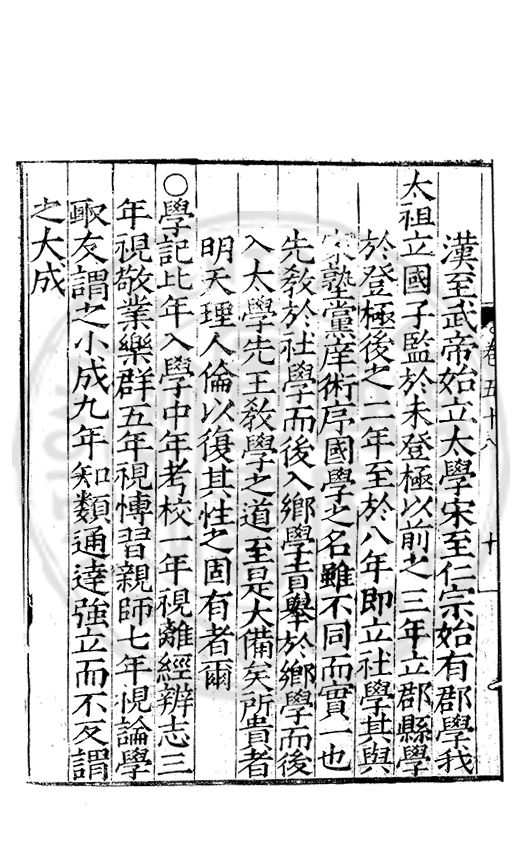 漢至武帝始立太學宋至仁宗始有郡學我
太祖立國子監於未登極以前之三年立郡縣學
於登極後之二年至於八年即立社學其與
家塾黨庠術序國學之名雖不同而實一也
先敎於社學而後入鄉學貢舉於鄉學而後
入太學先王敎學之道至是大備矣所貴者
明天理人倫以復其性之固有者爾
○學記比年入學中年考校一年視離經辨志三
年視敬業樂群五年視博習親師七年視論學
取友謂之小成九年知類通達強立而不反謂
之大成
卷五十八
十